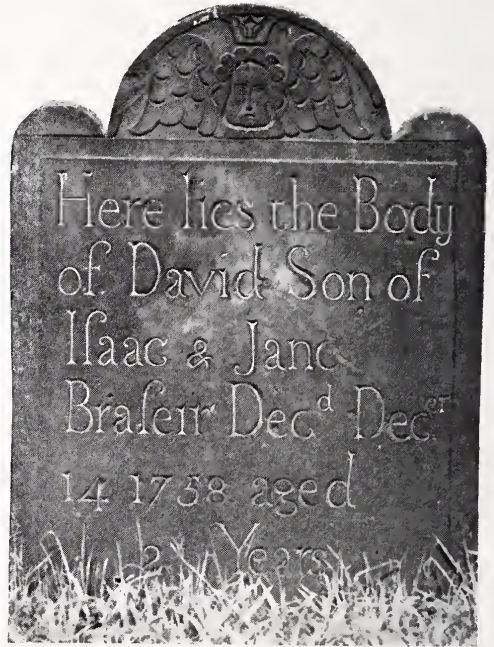 Here lies the Body
of David Son of
Iſaac & Jane
Braſeir Decᵈ Decᵉʳ
14 1758 aged
2 Years